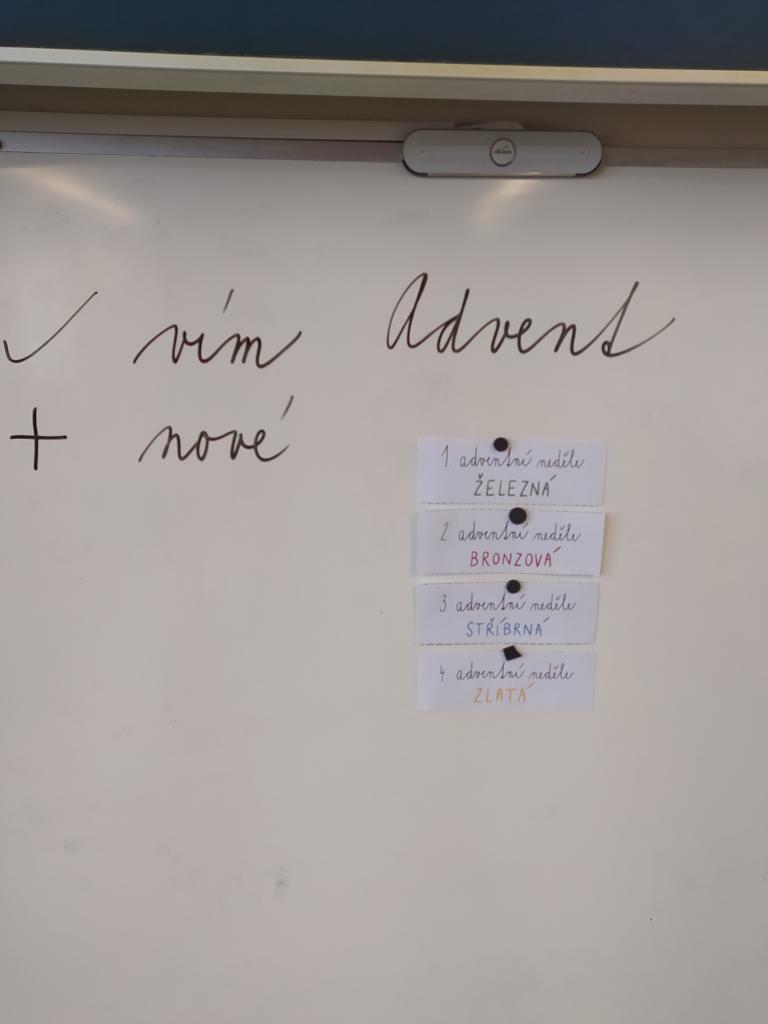 ✓ vím
Advent
+ nové
1. adventní neděle
ŽELEZNÁ
2. adventní neděle
BRONZOVÁ
3. adventní neděle
STŘÍBRNÁ
4. adventní neděle
ZLATÁ